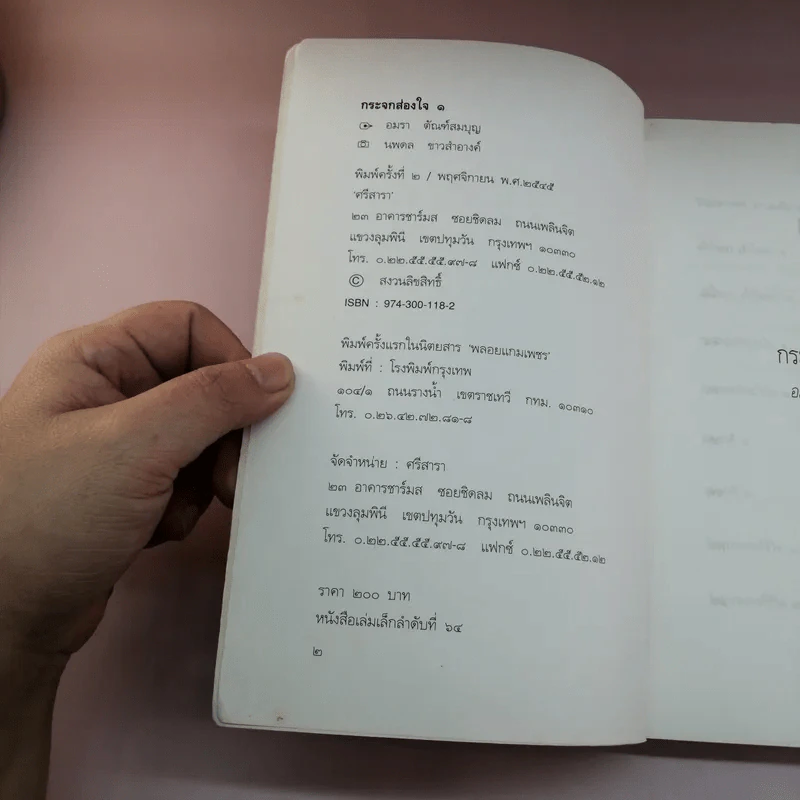 กระจกส่องใจ ๑
อมรา ตัณฑ์สมบุญ
นพดล ขาวสำอางค์
พิมพ์ครั้งที่ ๒ / พฤศจิกายน พ.ศ.๒๕๔๕
'ศรีสารา'
๒๓ อาคารชาร์มส ซอยชิดลม ถนนเพลินจิต
แขวงลุมพินี เขตปทุมวัน กรุงเทพฯ ๑๐๓๓๐
โทร. ๐.๒๒.๕๕.๕๕.๙๗-๘ แฟกซ์ ๐.๒๒.๕๕.๕๒.๑๒
© สงวนลิขสิทธิ์
ISBN : 974-300-118-2
พิมพ์ครั้งแรกในนิตยสาร 'พลอยแกมเพชร'
พิมพ์ที่ : โรงพิมพ์กรุงเทพ
๑๐๔/๑ ถนนรางน้ำ เขตราชเทวี กทม. ๑๐๓๑๐
โทร. ๐.๒๖.๔๒.๗๒.๘๑-๘
จัดจำหน่าย : ศรีสารา
๒๓ อาคารชาร์มส ซอยชิดลม ถนนเพลินจิต
แขวงลุมพินี เขตปทุมวัน กรุงเทพฯ ๑๐๓๓๐
โทร. ๐.๒๒.๕๕.๕๕.๙๗-๘ แฟกซ์ ๐.๒๒.๕๕.๕๒.๑๒
ราคา ๒๐๐ บาท
หนังสือเล่มเล็กลำดับที่ ๖๔
๒